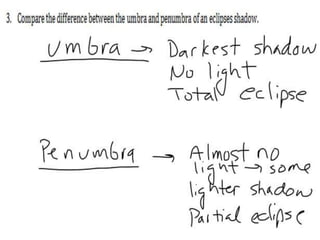 3. Compare the difference between the umbra and penumbra of an eclipses shadow.
Umbra → Darkest shadow
No light
Total eclipse
Penumbra → Almost no
light → some
lighter shadow
Partial eclipse